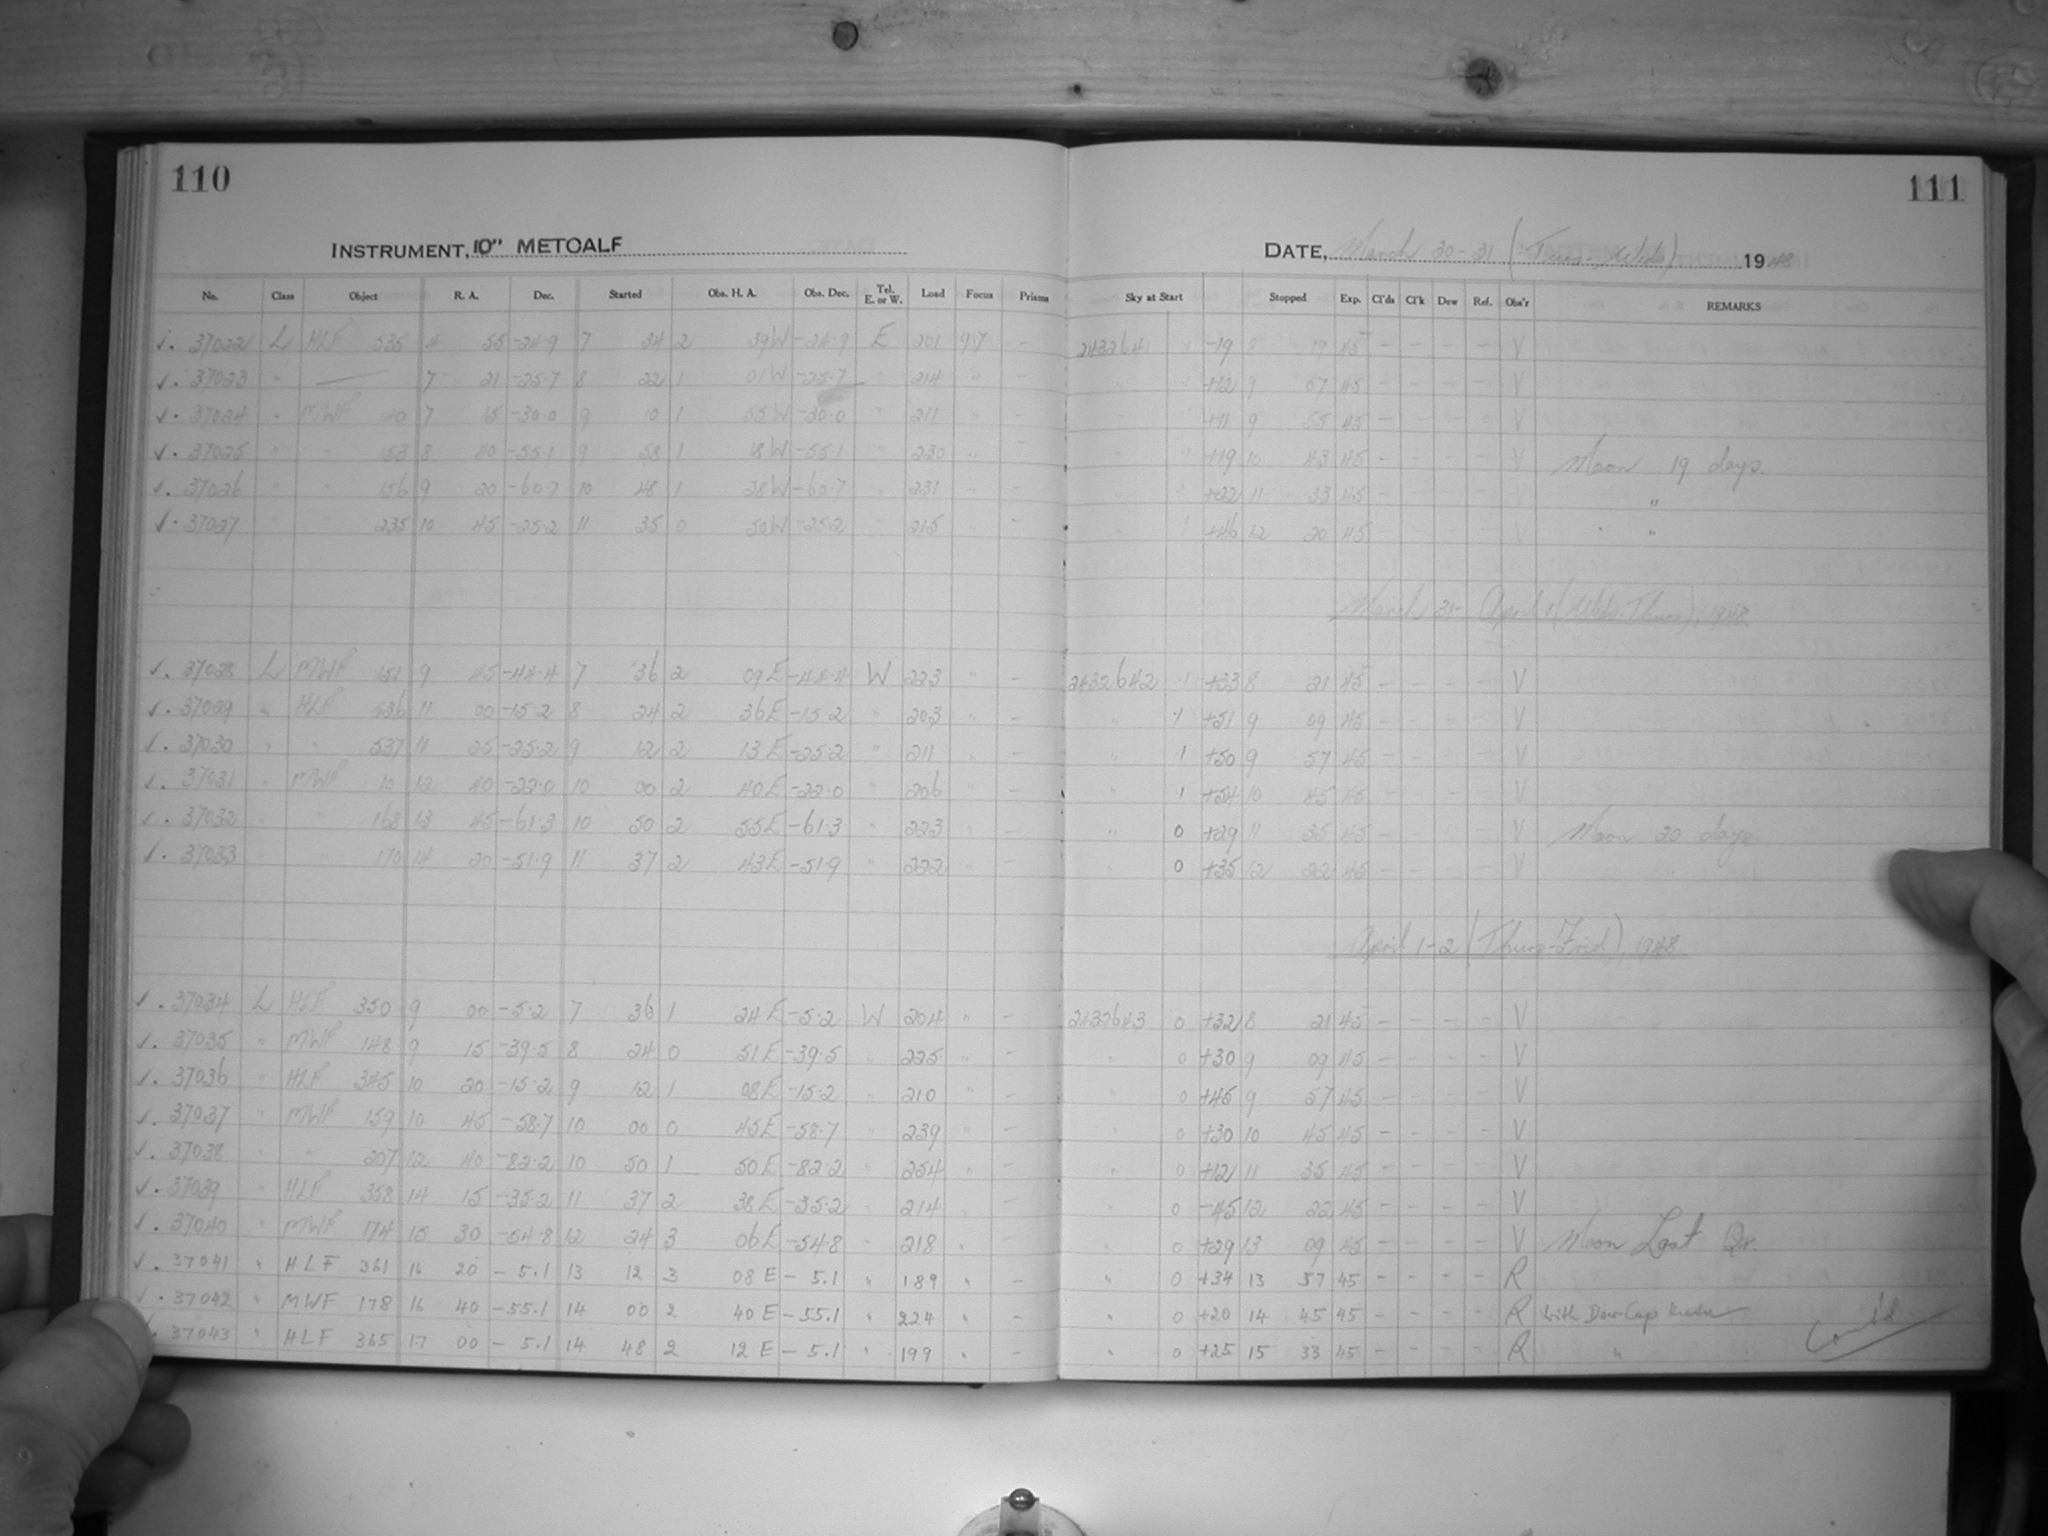 110
111
INSTRUMENT, 10" METCALF
DATE, March 30-31 (Tues-Weds) 1948
No. Class Object R. A. Dec. Started Obs. H. A. Obs. Dec. Tel. E. or W. Load Focus Prisms Sky at Start Stopped Exp. Cl'ds Cl'k Dew Ref. Obs'r REMARKS
√. 37022 L HLF 535 4 55 -24.9 7 34 2 39W -24.9 E 201 9.7 - 2432641 -19 8 19 45 - - - - V
√. 37023 " — 7 21 -25.7 8 22 1 01W -25.7 " 214 " - " +12 9 07 45 - - - - V
√. 37024 " MWF 9 10 1 55W -30.0 " 211 " - " +11 9 55 45 - - - - V
√. 37025 " " 153 8 40 -55.1 9 58 1 18W -55.1 " 230 " - " +19 10 43 45 - - - - V Moon 19 days.
√. 37026 " " 156 9 20 -60.7 10 48 1 28W -60.7 " 231 " - " +22 11 33 45 - - - - V "
√. 37027 " " 235 10 45 -25.2 11 35 0 50W -25.2 " 215 " - " +46 12 20 45 - - - - V "
March 31- April 1 (Weds-Thurs), 1948
√. 37028 L MWF 151 9 45 -44.4 7 36 2 09E -44.4 W 223 " - 2432642 1 +33 8 21 45 - - - - V
√. 37029 " HLF 536 11 00 -15.2 8 24 2 36E -15.2 " 203 " - " 1 +51 9 09 45 - - - - V
√. 37030 " " 537 11 25 -25.2 9 12 2 13E -25.2 " 211 " - " 1 +50 9 57 45 - - - - V
√. 37031 " MWF 10 12 40 -22.0 10 00 2 40E -22.0 " 206 " - " 1 +54 10 45 45 - - - - V
√. 37032 " " 168 13 45 -61.3 10 50 2 55E -61.3 " 223 " - " 0 +29 11 35 45 - - - - V Moon 20 days
√. 37033 " " 170 14 20 -51.9 11 37 2 43E -51.9 " 222 " - " 0 +35 12 22 45 - - - - V "
April 1-2 (Thurs-Frid), 1948
√. 37034 L HLF 350 9 00 -5.2 7 36 1 24E -5.2 W 204 " - 2432643 0 +32 8 21 45 - - - - V
√. 37035 " MWF 148 9 15 -39.5 8 24 0 51E -39.5 " 225 " - " 0 +30 9 09 45 - - - - V
√. 37036 " HLF 345 10 20 -15.2 9 12 1 08E -15.2 " 210 " - " 0 +45 9 57 45 - - - - V
√. 37037 " MWF 159 10 45 -58.7 10 00 0 45E -58.7 " 239 " - " 0 +30 10 45 45 - - - - V
√. 37038 " " 207 12 40 -82.2 10 50 1 50E -82.2 " 254 " - " 0 +12 11 35 45 - - - - V
√. 37039 " HLF 358 14 15 -35.2 11 37 2 38E -35.2 " 214 " - " 0 -45 12 22 45 - - - - V
√. 37040 " MWF 174 15 30 -54.8 12 24 3 06E -54.8 " 218 " - " 0 +29 13 09 45 - - - - V Moon Last Qr.
√. 37041 " HLF 361 16 20 -5.1 13 12 3 08E -5.1 " 189 " - " 0 +34 13 57 45 - - - - R
√. 37042 " MWF 178 16 40 -55.1 14 00 2 40E -55.1 " 224 " - " 0 +20 14 45 45 - - - - R With Dew Cap Heater
√. 37043 " HLF 365 17 00 -5.1 14 48 2 12E -5.1 " 199 " - " 0 +25 15 33 45 - - - - R " Cont'd.